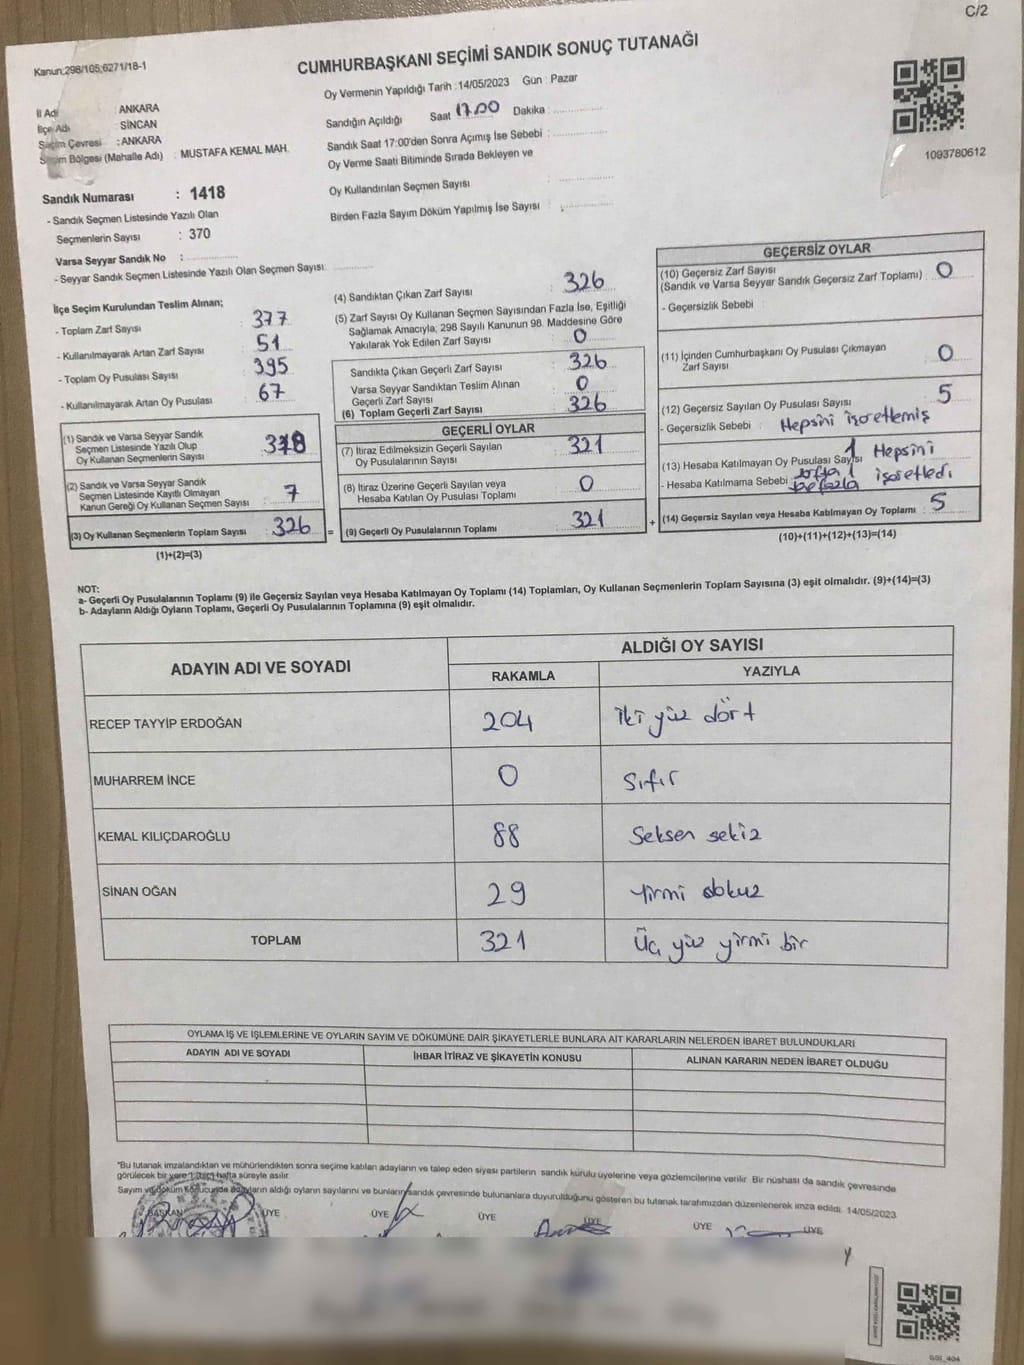 C/2
Kanun;298/105;6271/18-1
CUMHURBAŞKANI SEÇİMİ SANDIK SONUÇ TUTANAĞI
İl Adı : ANKARA
İlçe Adı : SİNCAN
Seçim Çevresi : ANKARA
Seçim Bölgesi (Mahalle Adı) : MUSTAFA KEMAL MAH.
Oy Vermenin Yapıldığı Tarih :14/05/2023 Gün : Pazar
Sandığın Açıldığı Saat 17.00 Dakika :
Sandık Saat 17:00'den Sonra Açımış İse Sebebi :
Oy Verme Saati Bitiminde Sırada Bekleyen ve
Oy Kullandırılan Seçmen Sayısı :
Birden Fazla Sayım Döküm Yapılmış İse Sayısı :
1093780612
Sandık Numarası : 1418
- Sandık Seçmen Listesinde Yazılı Olan
Seçmenlerin Sayısı : 370
Varsa Seyyar Sandık No :
- Seyyar Sandık Seçmen Listesinde Yazılı Olan Seçmen Sayısı:
İlçe Seçim Kurulundan Teslim Alınan;
- Toplam Zarf Sayısı : 377
- Kullanılmayarak Artan Zarf Sayısı : 51
- Toplam Oy Pusulası Sayısı : 395
- Kullanılmayarak Artan Oy Pusulası : 67
(1) Sandık ve Varsa Seyyar Sandık
Seçmen Listesinde Yazılı Olup
Oy Kullanan Seçmenlerin Sayısı
(2) Sandık ve Varsa Seyyar Sandık
Seçmen Listesinde Kayıtlı Olmayan
Kanun Gereği Oy Kullanan Seçmen Sayısı : 7
(3) Oy Kullanan Seçmenlerin Toplam Sayısı : 326
(1)+(2)=(3)
(4) Sandıktan Çıkan Zarf Sayısı : 326
(5) Zarf Sayısı Oy Kullanan Seçmen Sayısından Fazla İse, Eşitliği
Sağlamak Amacıyla; 298 Sayılı Kanunun 98. Maddesine Göre
Yakılarak Yok Edilen Zarf Sayısı : 0
Sandıkta Çıkan Geçerli Zarf Sayısı : 326
Varsa Seyyar Sandıktan Teslim Alınan
Geçerli Zarf Sayısı : 0
(6) Toplam Geçerli Zarf Sayısı : 326
GEÇERLİ OYLAR
(7) İtiraz Edilmeksizin Geçerli Sayılan
Oy Pusulalarının Sayısı : 321
(8) İtiraz Üzerine Geçerli Sayılan veya
Hesaba Katılan Oy Pusulası Toplamı : 0
(9) Geçerli Oy Pusulalarının Toplamı : 321
GEÇERSİZ OYLAR
(10) Geçersiz Zarf Sayısı
(Sandık ve Varsa Seyyar Sandık Geçersiz Zarf Toplamı) : 0
- Geçersizlik Sebebi :
(11) İçinden Cumhurbaşkanı Oy Pusulası Çıkmayan
Zarf Sayısı : 0
(12) Geçersiz Sayılan Oy Pusulası Sayısı : 5
- Geçersizlik Sebebi : Hepsini işaretlemiş
(13) Hesaba Katılmayan Oy Pusulası Sayısı 1 Hepsini
- Hesaba Katılmama Sebebi işaretledi
(14) Geçersiz Sayılan veya Hesaba Katılmayan Oy Toplamı : 5
(10)+(11)+(12)+(13)=(14)
NOT:
a- Geçerli Oy Pusulalarının Toplamı (9) ile Geçersiz Sayılan veya Hesaba Katılmayan Oy Toplamı (14) Toplamları, Oy Kullanan Seçmenlerin Toplam Sayısına (3) eşit olmalıdır. (9)+(14)=(3)
b- Adayların Aldığı Oyların Toplamı, Geçerli Oy Pusulalarının Toplamına (9) eşit olmalıdır.
ADAYIN ADI VE SOYADI
ALDIĞI OY SAYISI
RAKAMLA YAZIYLA
RECEP TAYYİP ERDOĞAN 204 iki yüz dört
MUHARREM İNCE 0 Sıfır
KEMAL KILIÇDAROĞLU 88 Seksen sekiz
SİNAN OĞAN 29 Yirmi dokuz
TOPLAM 321 Üç yüz yirmi bir
OYLAMA İŞ VE İŞLEMLERİNE VE OYLARIN SAYIM VE DÖKÜMÜNE DAİR ŞİKAYETLERLE BUNLARA AİT KARARLARIN NELERDEN İBARET BULUNDUKLARI
ADAYIN ADI VE SOYADI İHBAR İTİRAZ VE ŞİKAYETİN KONUSU ALINAN KARARIN NEDEN İBARET OLDUĞU
*Bu tutanak imzalandıktan ve mühürlendikten sonra seçime katılan adayların ve talep eden siyasi partilerin sandık kurulu üyelerine veya gözlemcilerine verilir. Bir nüshası da sandık çevresinde
görülecek bir yere 1 (bir) hafta süreyle asılır.
Sayım ve döküm sonucunda adayların aldığı oyların sayılarını ve bunların sandık çevresinde bulunanlara duyurulduğunu gösteren bu tutanak tarafımızdan düzenlenerek imza edildi. 14/05/2023
BAŞKAN ÜYE ÜYE ÜYE ÜYE ÜYE ÜYE